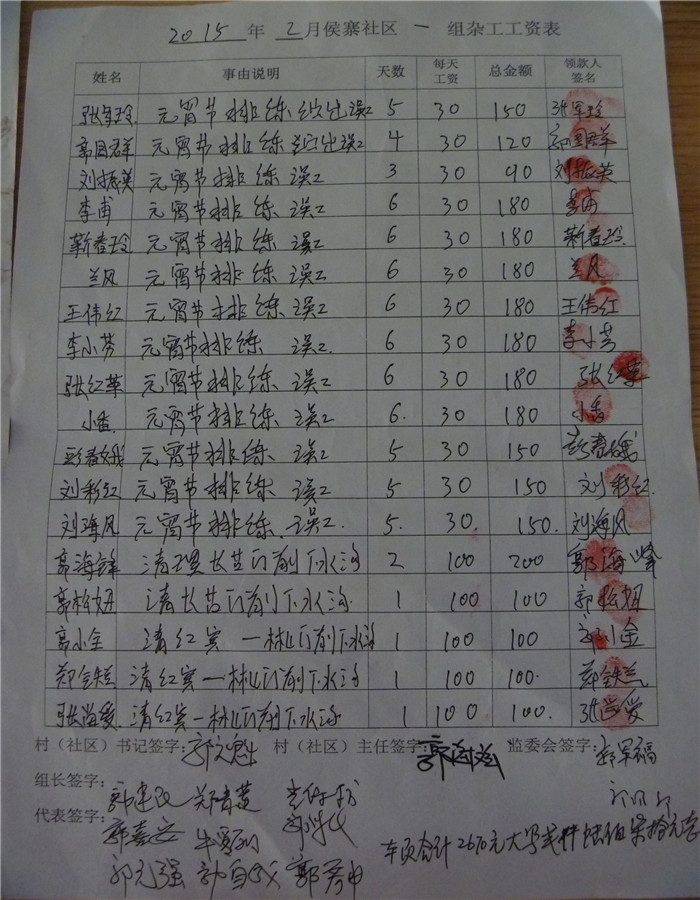 2015 年 2 月侯寨社区 一 组杂工工资表
姓名 事由说明 天数 每天工资 总金额 领款人签名
张军玲 元宵节排练 演出误工 5 30 150 张军玲
郭国群 元宵节排练 演出误工 4 30 120 郭国群
刘振英 元宵节排练 误工 3 30 90 刘振英
李甫 元宵节排练 误工 6 30 180 李甫
靳春玲 元宵节排练 误工 6 30 180 靳春玲
兰凤 元宵节排练 误工 6 30 180 兰凤
王伟红 元宵节排练 误工 6 30 180 王伟红
李小芳 元宵节排练 误工 6 30 180 李小芳
张红革 元宵节排练 误工 6 30 180 张红革
小香 元宵节排练 误工 6 30 180 小香
彭春娥 元宵节排练 误工 5 30 150 彭春娥
刘彩红 元宵节排练 误工 5 30 150 刘彩红
刘海凤 元宵节排练 误工 5 30 150 刘海凤
郭海锋 清理 门前下水沟 2 100 200 郭海峰
郭松妞 清 门前下水沟 1 100 100 郭松妞
郭小金 清红宾一林门前下水沟 1 100 100 郭小金
郑铁兰 清红宾一林门前下水沟 1 100 100 郑铁兰
清红宾一林门前下水沟 1 100 100
村（社区）书记签字： 村（社区）主任签字 监委会签字： 郭军福
组长签字：
郭建政
代表签字：
郭嘉安
本页合计2670元大写贰仟陆佰柒拾元
郭元强